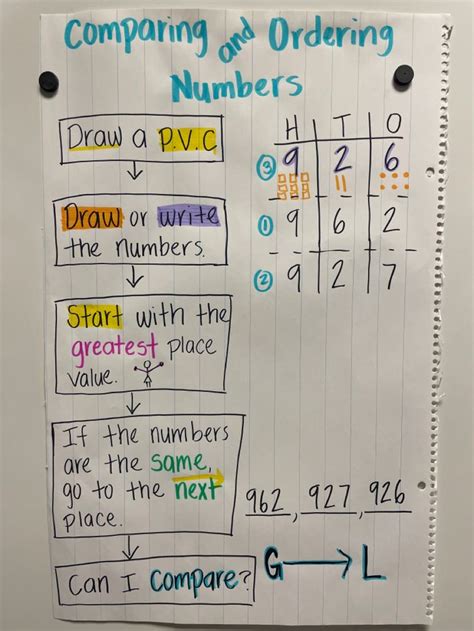 Comparing and Ordering
Numbers
Draw a P.V.C
Draw or write
the numbers.
Start with the
greatest place
value.
If the numbers
are the same,
go to the next
place.
Can I compare?
H T O
③ 9 2 6
① 9 6 2
② 9 2 7
962, 927, 926
G → L